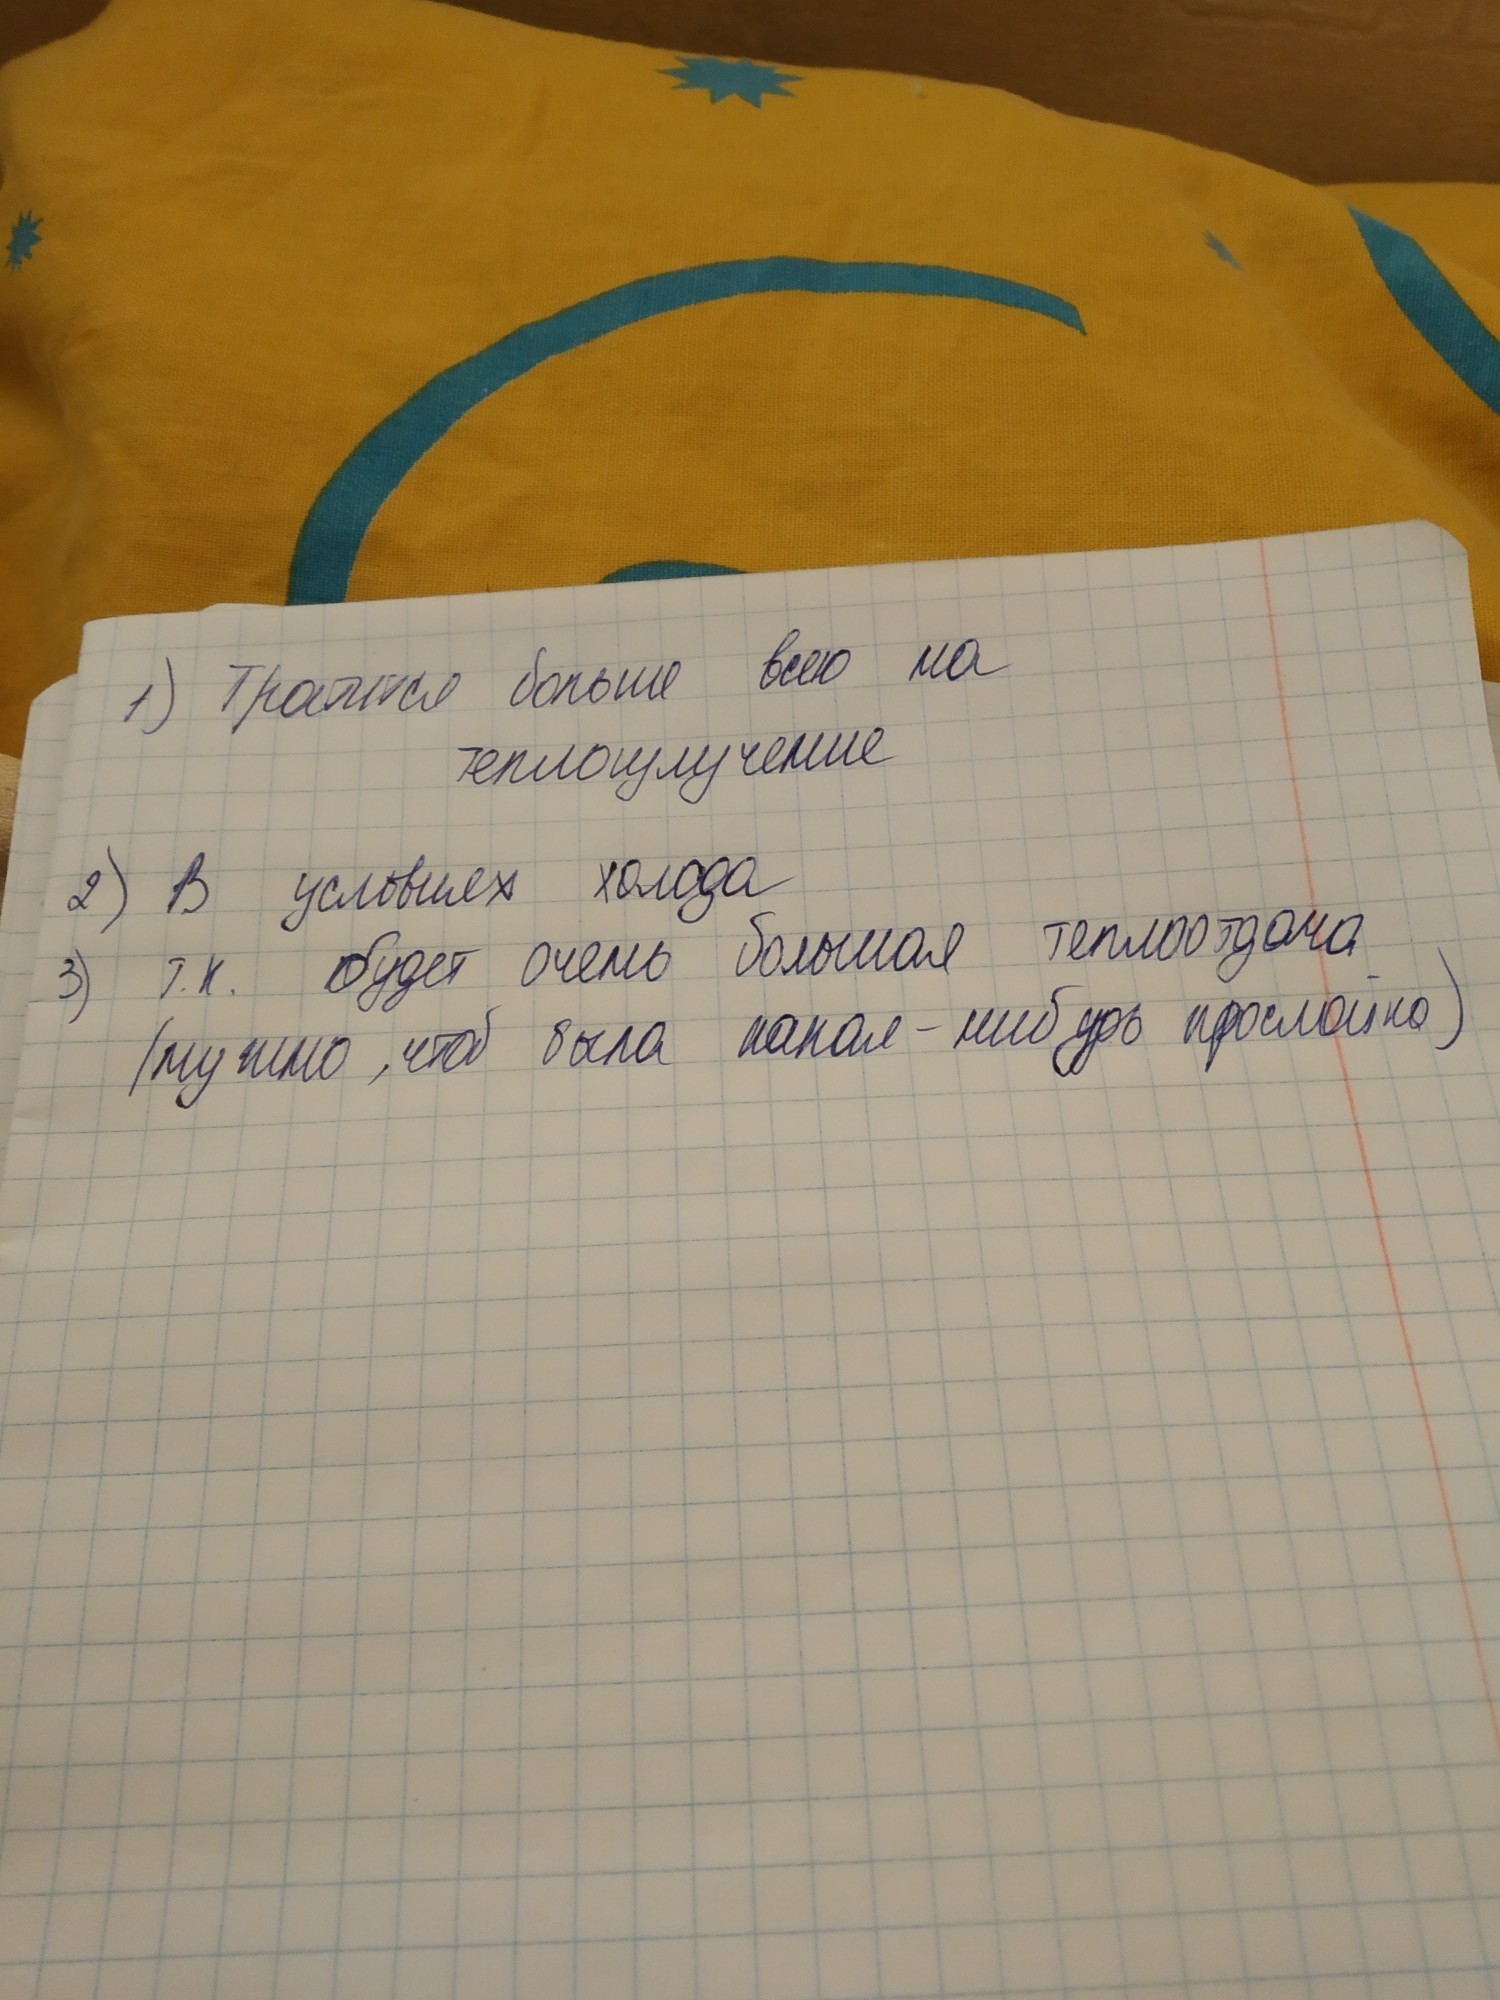 1) Тратится больше всего на
теплоизлучение
2) В условиях холода
3) т.к. будет очень большая теплоотдача
(нужно, чтоб была какая-нибудь прослойка)